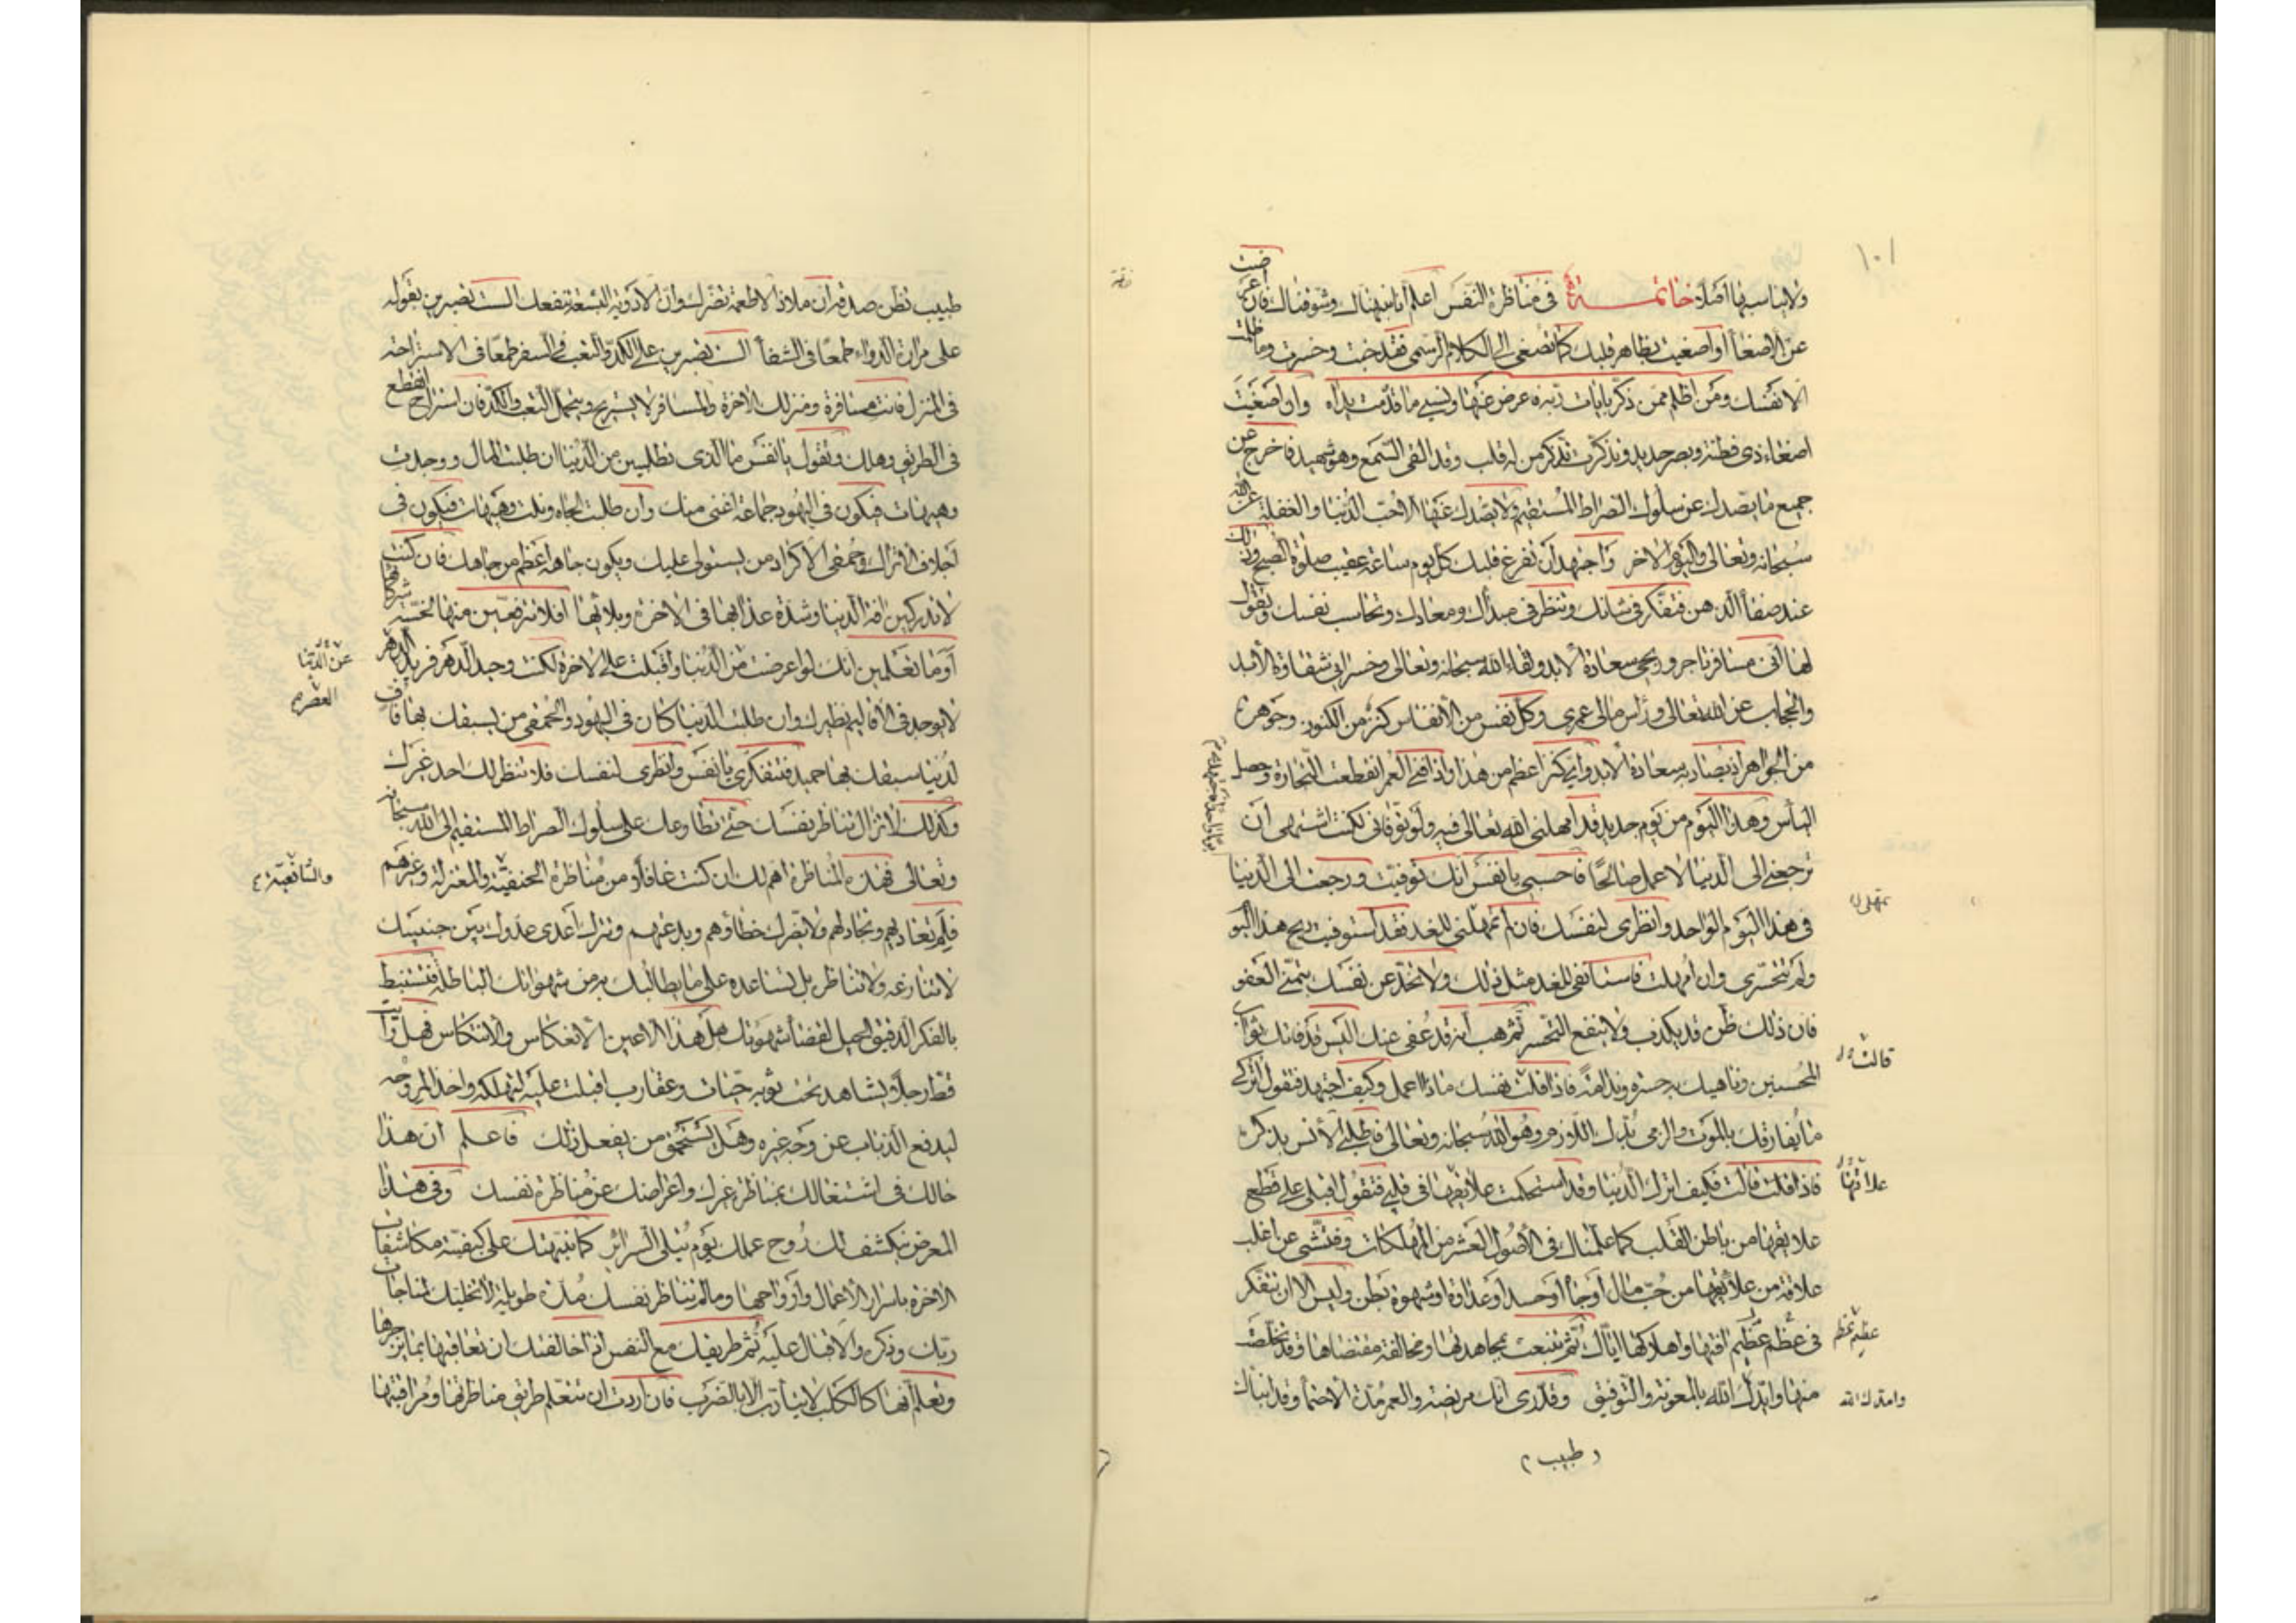 ١٠١
ولا يناسبها اصلا خاتمة في مناظرة النفس اعلم انا نبهناك وشوقناك فان اعرضت
عن الاصغاء او اصغيت بظاهر قلبك كما تصغى الى الكلام الرسمي فقد خبت وخسرت وما ظلمت
الا نفسك ومن اظلم ممن ذكر بايات ربه فاعرض عنها ونسي ما قدمت يداه وان اصغيت
اصغاء ذي فطنة وبصر حديد وتذكرت تذكر من له قلب وقد القى السمع وهو شهيد فاخرج عن
جميع ما يصدك عن سلوك الصراط المستقيم ولا يصدك عنها الا حب الدنيا والغفلة عن الله
سبحانه وتعالى واليوم الاخر واجتهد ان تفرغ قلبك كل يوم ساعة عقيب صلوة الصبح وذلك
عند صفاء الذهن فتفكر في شانك وتنظر في مبدأك ومعادك وتحاسب نفسك وتقول
لها اني مسافر تاجر وربحي سعادة الابد ولقاء الله سبحانه وتعالى وخسراني شقاوة الأبد
والحجاب عن الله تعالى وراس مالي عمري وكل نفس من الأنفاس كنز من الكنوز وجوهرة
من الجواهر اذ يصاد به سعادة الابد واي كنز اعظم من هذا واذا فنى العمر انقطعت التجارة وحصل
الياس وهذا اليوم من يوم جديد قد امهلني الله تعالى فيه ولو توفاني لكنت اشتهي ان
ترجعني الى الدنيا لاعمل صالحا فاحسبي يا نفس انك توفيت ورجعت الى الدنيا
في هذا اليوم الواحد وانظري لنفسك فان لم تمهلني للغد فقد استوفيت ربح هذا اليوم
تمهلي
ولم تتحسري وان امهلت فاستانفي للغد مثل ذلك ولا تخدعن نفسك بتمني العفو
فان ذلك ظن قد يكذب ولا ينفع التحسر ثم هب انه قد عفي عنك اليس قد فاتك ثواب
قالت
المحسنين وناهيك به حسرة وندامة فاذا قلت نفسك ماذا اعمل وكيف اجتهد فتقول اتركي
ما يفارقك بالموت والزمي بدك اللازم وهو الله سبحانه وتعالى فاطلبي الأنس بذكره
فاذا قلت قالت فكيف اترك الدنيا وقد استحكمت علائقها في قلبي فتقول اقبلي على قطع
علائقها
علائقها من باطن القلب كما علمناك في الأصول العشر من المهلكات وفتشي عن اغلب
علاقة من علائقها من حب مال او جاه او حسد او عداوة او شهوة بطن وليس الا ان تتفكر
في عظم عظيم افتها واهلاكها اياك ثم تنبعث بمجاهدتها ومخالفة مقتضاها وقد تخلصت
عظيم عظم
منها وايدك الله بالمعونة والتوفيق وقدري انك مريضة والعمر مدة الاحتماء وقد انباك
وامدك الله
طبيب
طبيب تظن صدقه ان ملاذ الاطعمة تضرك وان الادوية البشعة تنفعك الست تصبرين بقوله
على مرارة الدواء طمعا في الشفاء الست تصبرين على الكد والتعب في السفر طمعا في الاستراحة
في المنزل فانت مسافرة ومنزلك الاخرة والمسافر لا يستريح ويتحمل التعب والكد فان استراح انقطع
في الطريق وهلك وتقول يا نفس ما الذي تطلبين من الدنيا ان طلبت المال ووجدت
وهيهات فيكون في اليهود جماعة اغنى منك وان طلبت الجاه ونلت وهيهات فيكون في
اجلاف الاتراك وحمقى الاكراد من يستولي عليك ويكون جاهه اعظم من جاهك فان كنت
لا تدركين افة الدنيا وشدة عذابها في الاخرة وبلائها افلا تترفعين منها لخسة شركائها
اوما تعلمين انك لو اعرضت من الدنيا واقبلت على الاخرة لكنت وحيد الدهر فريد الدهر
عن الدنيا
العصر
لا يوجد في الأقاليم نظيرك وان طلبت الدنيا كان في اليهود والحمقى من يسبقك بها فاف
لدنيا سبقك بها حميد فتفكري يا نفس وانظري لنفسك فلا تنظر لك احد غيرك
وكذلك لا تزال تناظر نفسك حتى تطاوعك على سلوك الصراط المستقيم الى الله سبحانه
وتعالى فهذه المناظرة اهم لك ان كنت عاقلا من مناظرة الحنفية والمعتزلة وغيرهم
والشافعية
فلم تعاديهم وتجادلهم ولا يضرك خطاؤهم وبدعتهم وتترك اعدى عدوك بين جنبيك
لا تنازعه ولا تناظره بل تساعده على ما يطالبك به من شهواتك الباطلة فتستنبط
بالفكر الدقيق الحيل لقضاء شهوتك هل هذا الا عين الانعكاس والانتكاس فهل رأيت
قط رجلا يشاهد تحت ثوبه حيات وعقارب اقبلت عليه لتهلكه واخذ المروحة
ليدفع الذباب عن وجه غيره وهل يستحمق من يفعل ذلك فاعلم ان هذا
حالك في اشتغالك بمناظرة غيرك واعراضك عن مناظرة نفسك وفي هذا
المعرض ينكشف لك روح عملك يوم تبلى السرائر كما نبهتك على كيفية مكاشفات
الاخرة باسرار الأعمال وارواحها وما لم تناظر نفسك مدة طويلة لا تخليك لمناجات
ربك وذكره والاقبال عليه ثم طريقك مع النفس اذا خالفتك ان تعاقبها بما يزجرها
وتعلم انها كالكلب لا يتأدب الا بالضرب فان اردت ان تتعلم طريق مناظرتها ومراقبتها